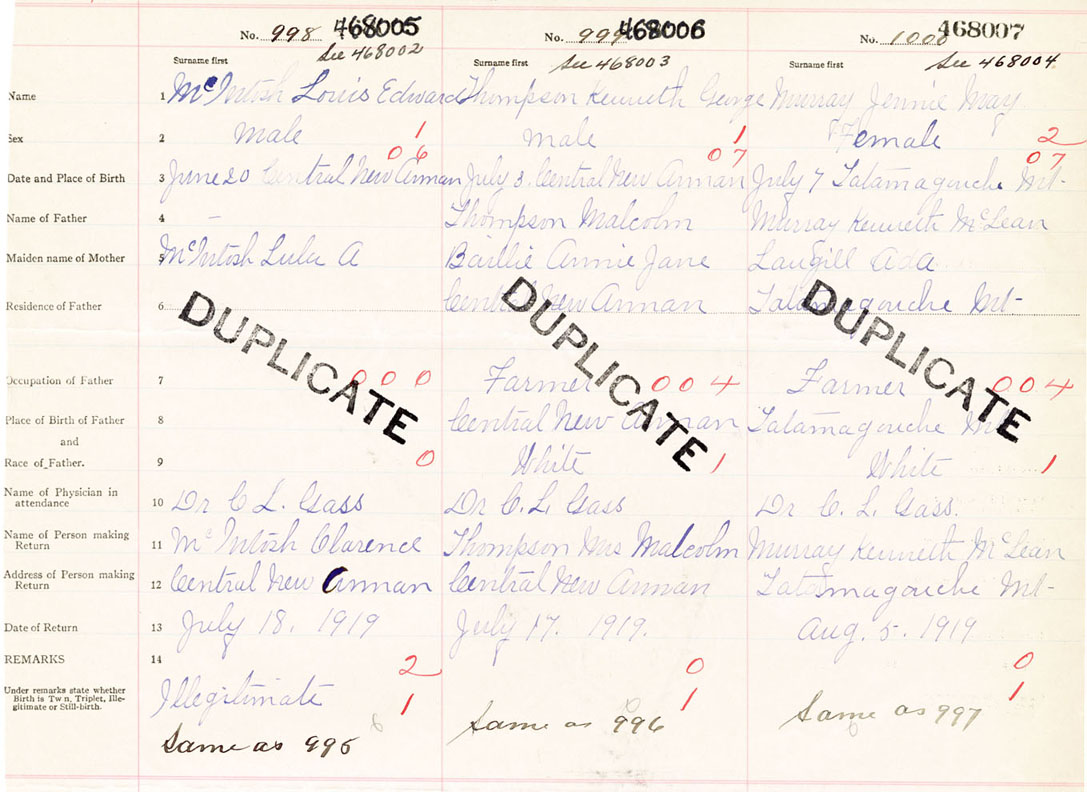 No. 998 468005 No. 999 468006 No. 1000 468007
See 468002 See 468003 See 468004
Surname first Surname first Surname first
Name 1 McIntosh Louis Edward Thompson Kenneth George Murray Jennie May
Sex 2 male 1 male 1 Female 2
06 07 07
Date and Place of Birth 3 June 20 Central New Annan July 3. Central New Annan July 7 Tatamagouche Mt-
Name of Father 4 - Thompson Malcolm Murray Kenneth McLean
Maiden name of Mother 5 McIntosh Lulu A Baillie Annie Jane Langill Ada
Residence of Father 6 Central New Annan Tatamagouche Mt-
DUPLICATE DUPLICATE DUPLICATE
Occupation of Father 7 000 Farmer 004 Farmer 004
Place of Birth of Father 8 Central New Annan Tatamagouche Mt
and
Race of Father. 9 0 White 1 White 1
Name of Physician in
attendance 10 Dr C L. Gass Dr C. L. Gass Dr C. L. Gass.
Name of Person making
Return 11 McIntosh Clarence Thompson Mrs Malcolm Murray Kenneth McLean
Address of Person making
Return 12 Central New Annan Central New Annan Tatamagouche Mt-
Date of Return 13 July 18. 1919 July 17. 1919. Aug. 5. 1919
REMARKS 14 2 0 0
Under remarks state whether
Birth is Twin, Triplet, Ille-
gitimate or Still-birth. Illegitimate 1 1 1
Same as 995 Same as 996 Same as 997